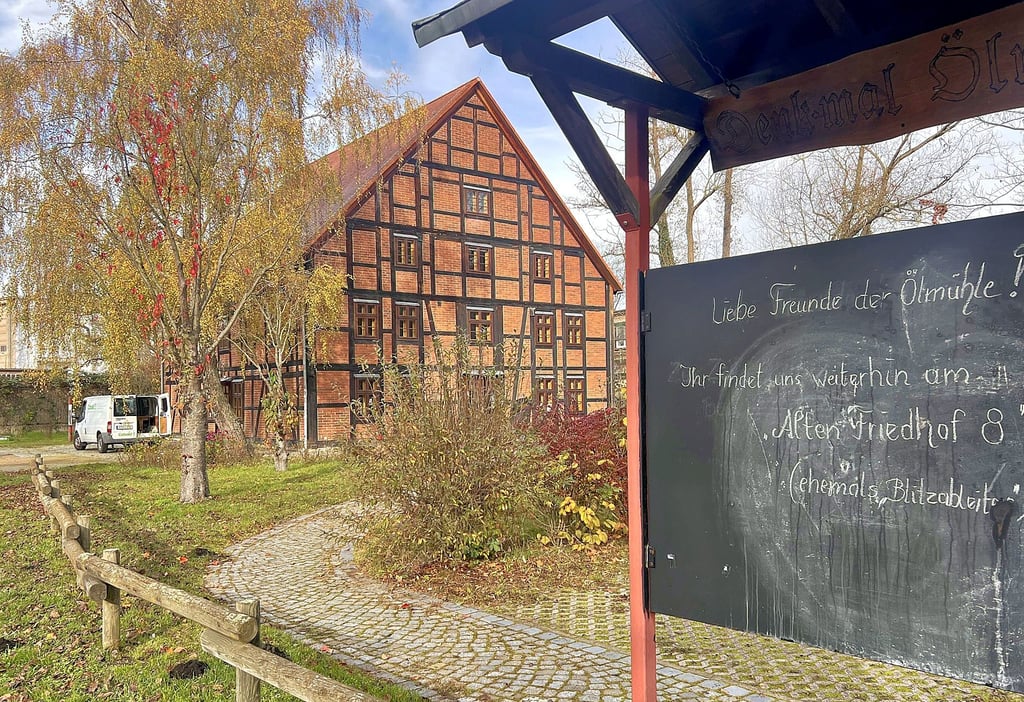 Denkmal Öl
Liebe Freunde der Ölmühle!
Ihr findet uns weiterhin am
"Alten Friedhof 8"
(ehemals „Blitzableite